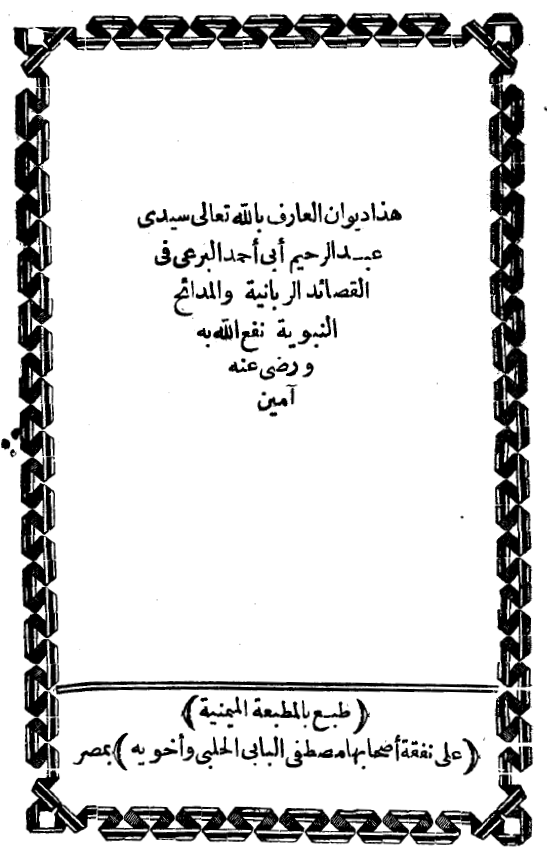 هذا ديوان العارف بالله تعالى سيدى
عبد الرحيم أبى أحمد البرعى فى
القصائد الربانية والمدائح
النبوية نفع الله به
ورضى عنه
آمين
(طبع بالمطبعة الميمنية)
(على نفقة أصحابها مصطفى البابى الحلبى وأخويه) بمصر